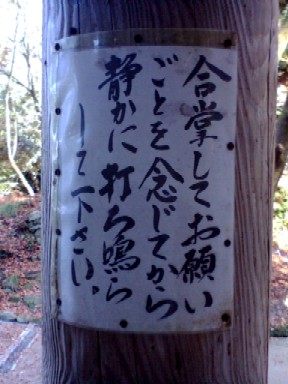 合掌してお願い
ごとを念じてから
静かに打ち鳴ら
して下さい。